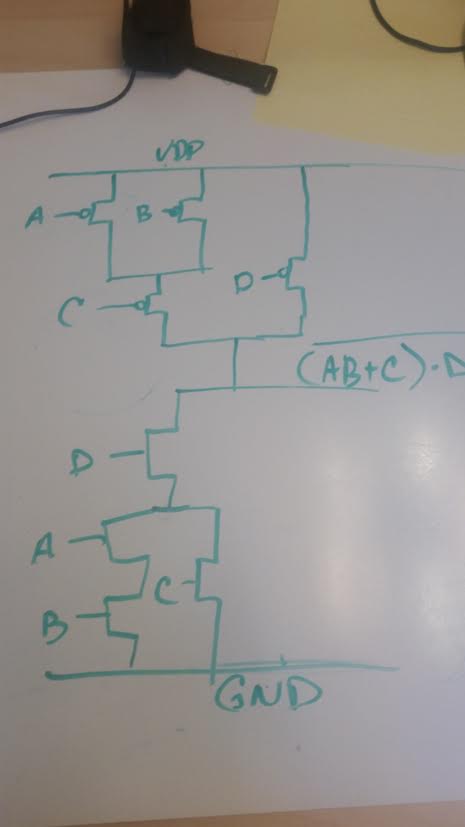 VDD
A
B
D
C
(AB+C)·D
D
A
C
B
GND